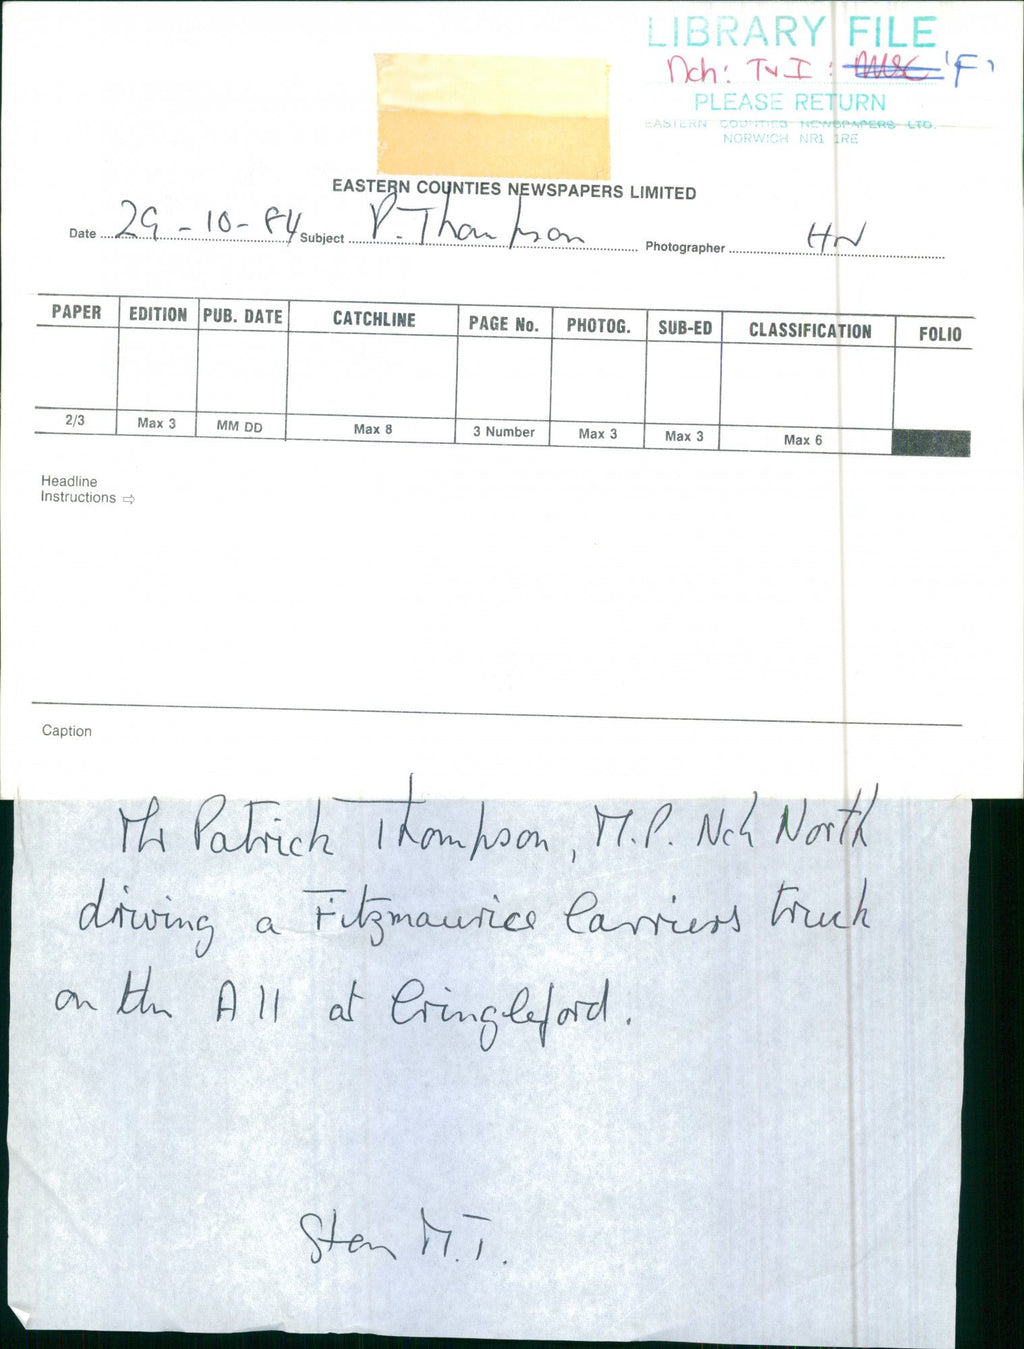 LIBRARY FILE
Nch: T&I: MISC 'F'
PLEASE RETURN
EASTERN COUNTIES NEWSPAPERS LTD.
NORWICH NR1 1RE
EASTERN COUNTIES NEWSPAPERS LIMITED
Date 29-10-84 Subject P. Thompson Photographer HN
PAPER EDITION PUB. DATE CATCHLINE PAGE No. PHOTOG. SUB-ED CLASSIFICATION FOLIO
2/3 Max 3 MM DD Max 8 3 Number Max 3 Max 3 Max 6
Headline
Instructions ⇨
Caption
Mr Patrick Thompson, M.P. Nch North
driving a Fitzmaurice Carriers truck
on the A11 at Cringleford.
Stan M.T.